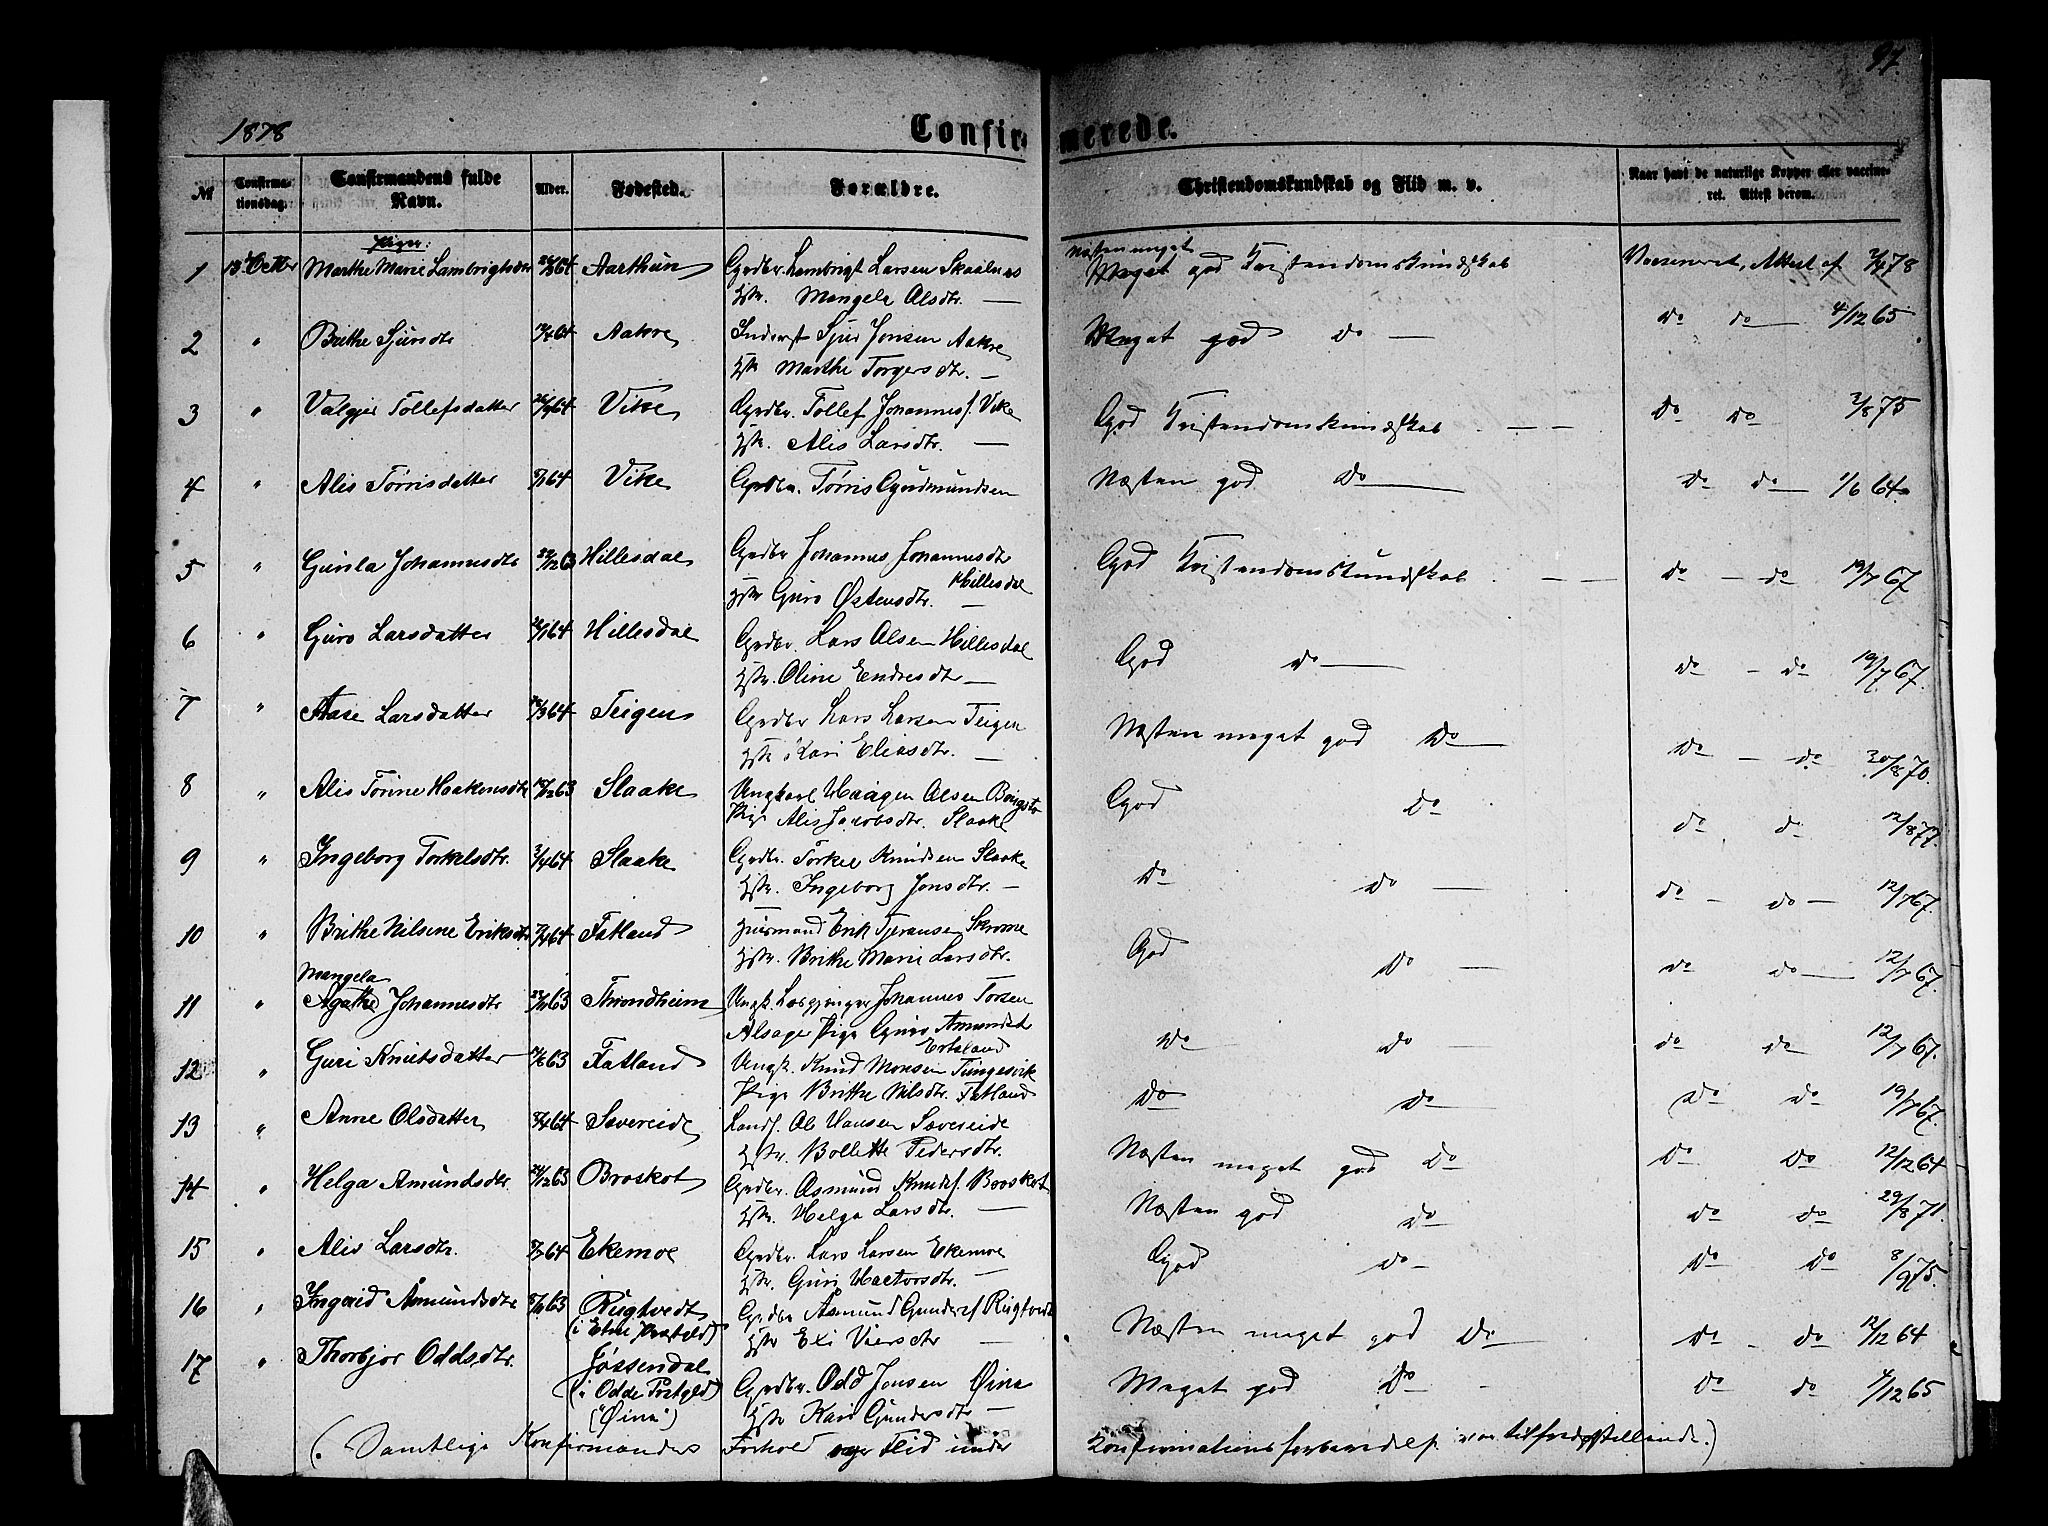 97.
1878
Confirmerede.
№
Confirmationsdag.
Confirmandens fulde Navn.
Alder.
Fødested.
Forældre.
Christendomskundskab og Flid m. v.
Naar havt de naturlige Kopper eller vaccineret. Attest derom.
Piger:
1 13 Octbr Marthe Marie Lambrigtsdtr 64 Aarthun Grdbr. Lambrigt Larsen Skaalnes
Hstr. Mangela Olsdtr. —
Næsten meget god Kristendomskundskab Vaccineret, Attest af 78
2 " Brithe Sjursdtr 64 Aakre Inderst Sjur Jonsen Aakre
Hst. Marthe Torgersdtr. —
Meget god do — do do — 4/12 65
3 " Valgjer Tollefsdatter 64 Vike Grdbr. Tollef Johannesf. Vike
Hstr. Alis Larsdtr. —
God Kristendomskundskab — — do do 2/8 75
4 " Alis Tørrisdatter 64 Vike Grdbr. Tørris Gudmundsen
Næsten god do — do do — 1/6 64
5 " Gunla Johannesdtr 63 Hillesdal Grdbr Johannes Johannesdtr
Hillesdal
Hstr Guro Østensdtr. —
God Kristendomskundskab — — do — do 19/7 67
6 " Guro Larsdatter 64 Hillesdal Grdbr. Lars Olsen Hillesdal
Hstr. Oline Endresdtr —
God do — do — do 19/7 67.
7 " Aase Larsdatter 64 Teigen Grdbr Lars Larsen Teigen
Hstr Kari Eliasdtr. —
Næsten meget god do do — do 30/8 70.
8 " Alis Tørine Haakensdtr 63 Slaake Ungkarl Haagen Olsen
Pige Alis Jacobsdtr. Slaake
God do do do 12/8 77.
9 " Ingeborg Torkelsdtr. 64 Slaake Grdbr. Torkel Knudsen Slaake
Hstr. Ingeborg Jonsdtr. —
do do — do — do — 12/7 67.
10 " Brithe Nilsine Eriksdtr 64 Fatland Husmand Erik Tjeransen Skrome
Hstr. Brithe Marie Larsdtr.
God do — do do — 12/7 67.
Mangela
11 " Agathe Johannesdtr 63 Throndheim Ungk. Johannes Torsen
Alsager Pige Guro Amundsd
Ertsland
do do — do do 12/7 67.
12 " Guri Knutsdatter 63 Fatland Ungk. Knud Monsen Tungesvik
Pige Brithe Nilsdtr. Fatland
do do — do do 19/7 67.
13 " Anne Olsdatter 64 Sævereide Landh. Ol Hansen Sævereide
Hstr. Bollette Pedersdtr.
Næsten meget god do do do 12/12 64
14 " Helga Amundsdtr 63 Broskot Grdbr. Asmund Knudsf. Broskot
Hstr. Helga Larsdtr. —
Næsten god do do do 29/8 71.
15 " Alis Larsdtr. 64 Ekemoe Grdbr. Lars Larsen Ekemoe
Hstr. Guri Hactorsdtr. —
God do — do do 8/9 75.
16 " Ingerid Asmundsdtr 63 Rugtvedt Grdbr Asmund Gundersf Rugtvedt
(i Etne Præstgld) Hstr Eli Viersdtr —
Næsten meget god do — do — do 12/12 64
17 " Thorbjor Oddsdtr. Jøssendal
(i Odde Præstgld) Grdbr. Odd Jonsen Øine
("Øine") Hstr Kari Gundersdtr —
Meget god do - do do 4/12 65
(. Samtlige Konfirmanders Forhold og Flid under Konfirmationsforberedels. var tilfredsstillende.)